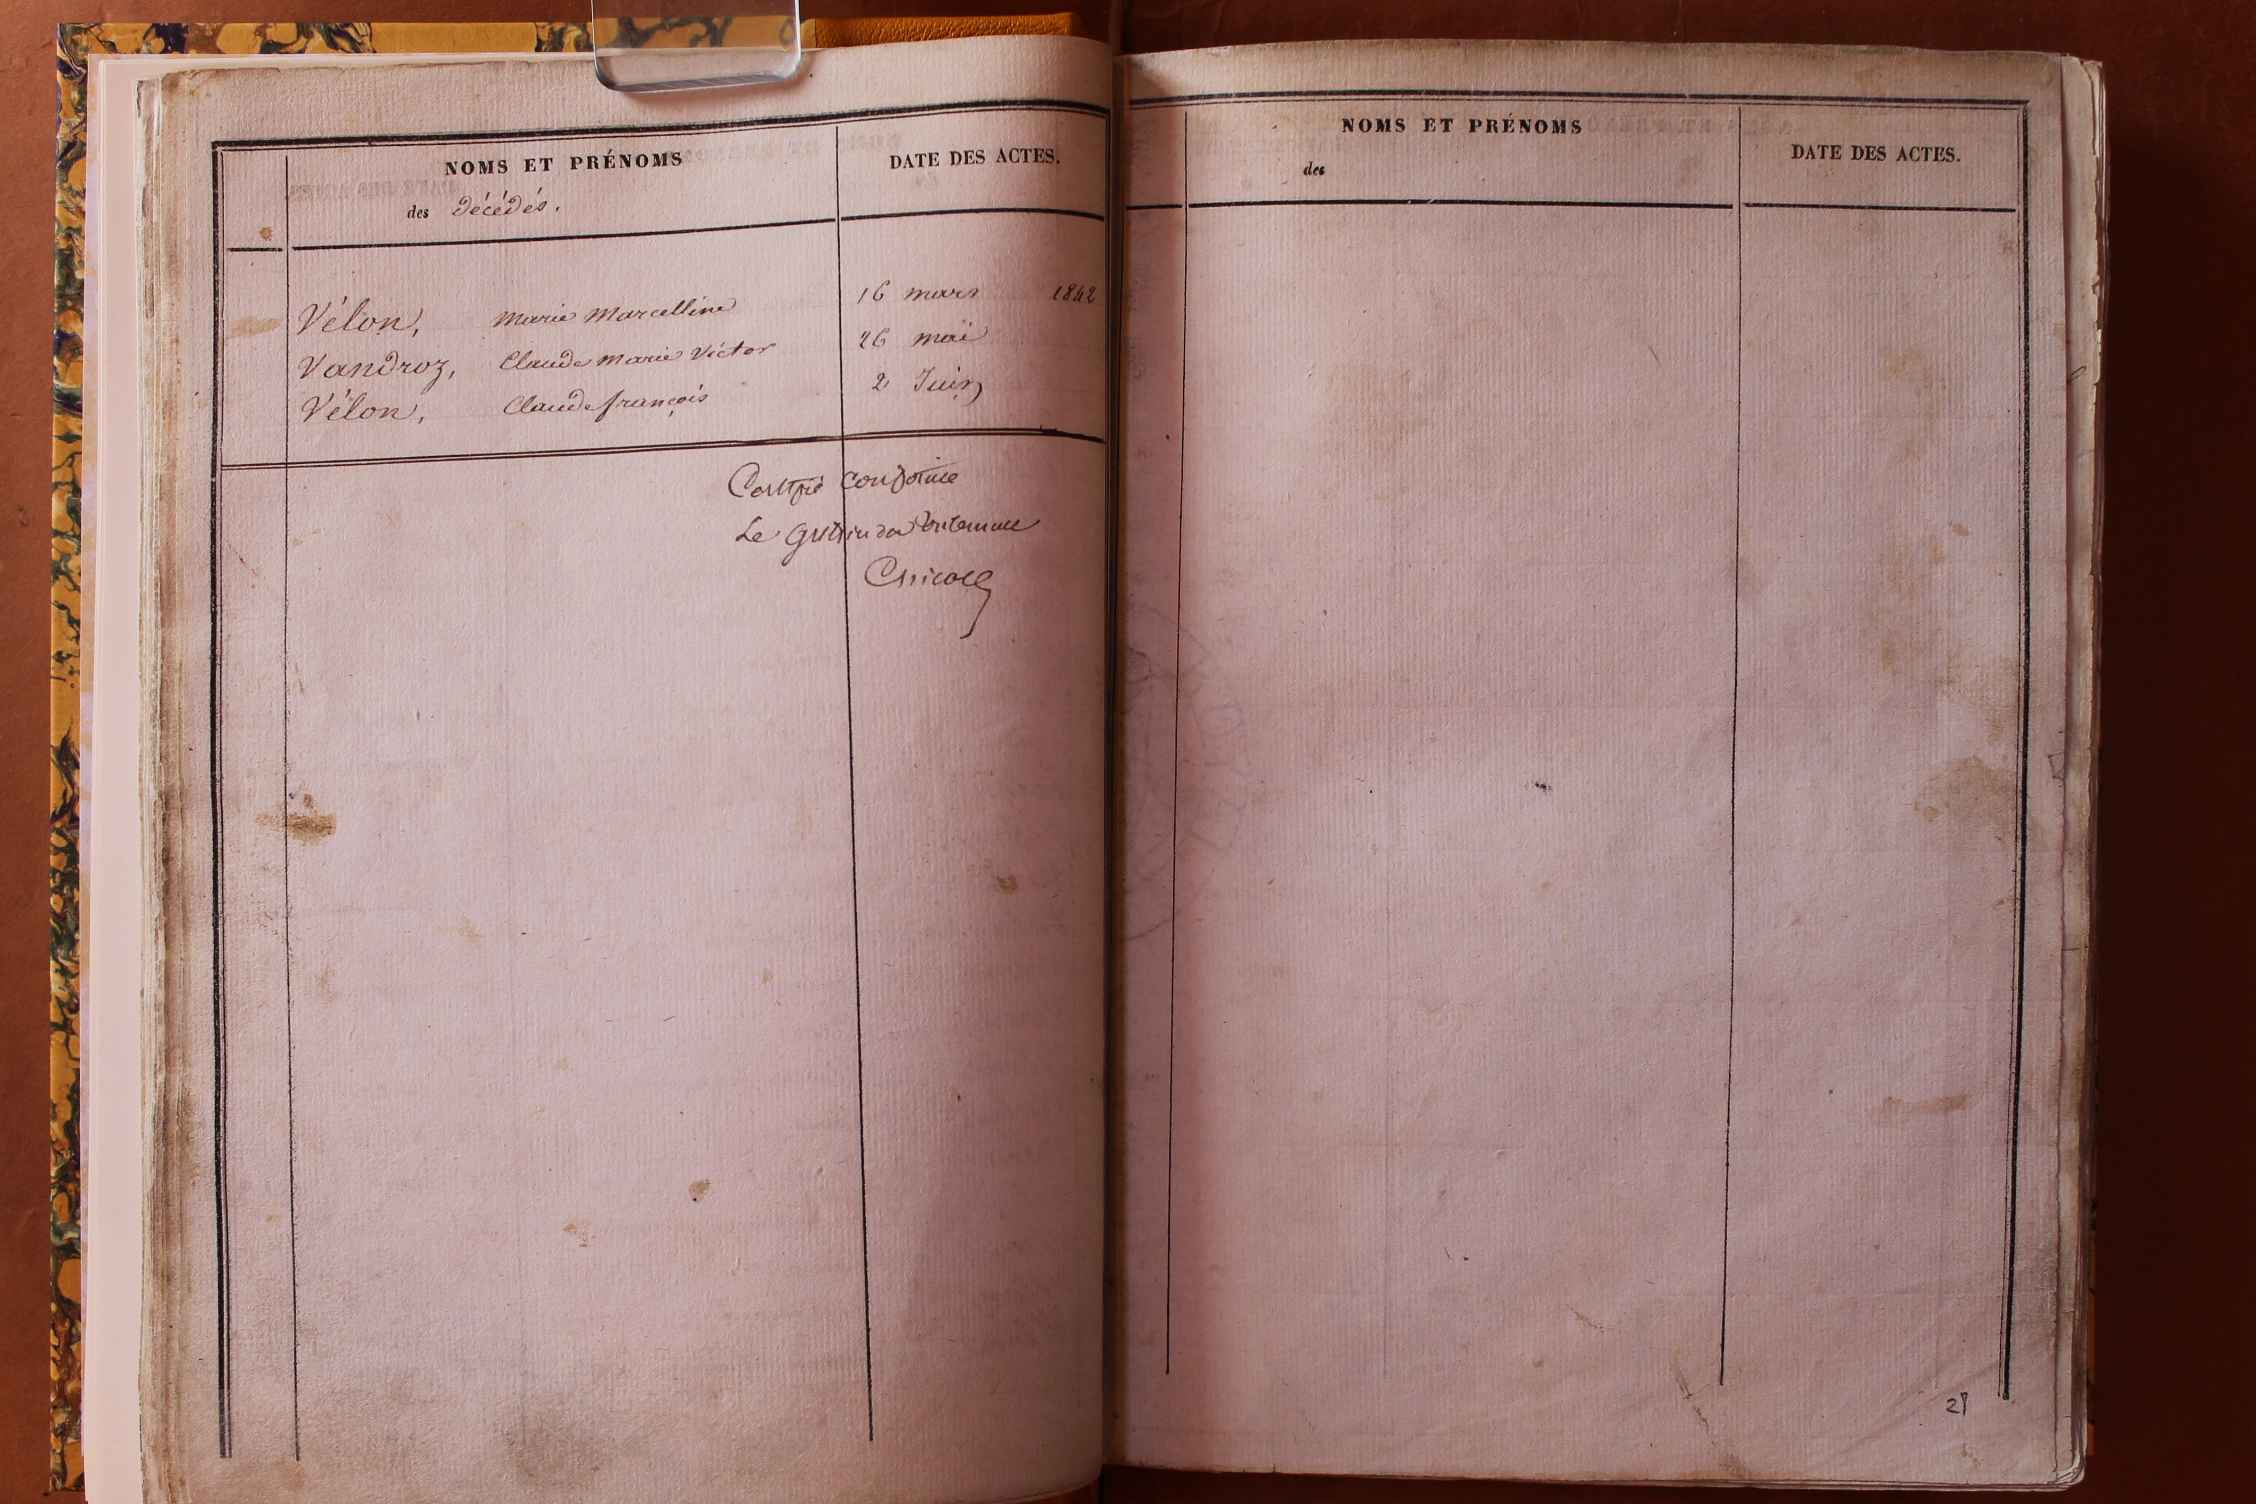 NOMS ET PRÉNOMS
des décédés.
DATE DES ACTES.
Vélon, Marie Marcelline 16 mars 1842
Vandroz, Claude Marie Victor 26 mai
Vélon, Claude françois 2 Juin
Certifié conforme
Le
NOMS ET PRÉNOMS
des
DATE DES ACTES.